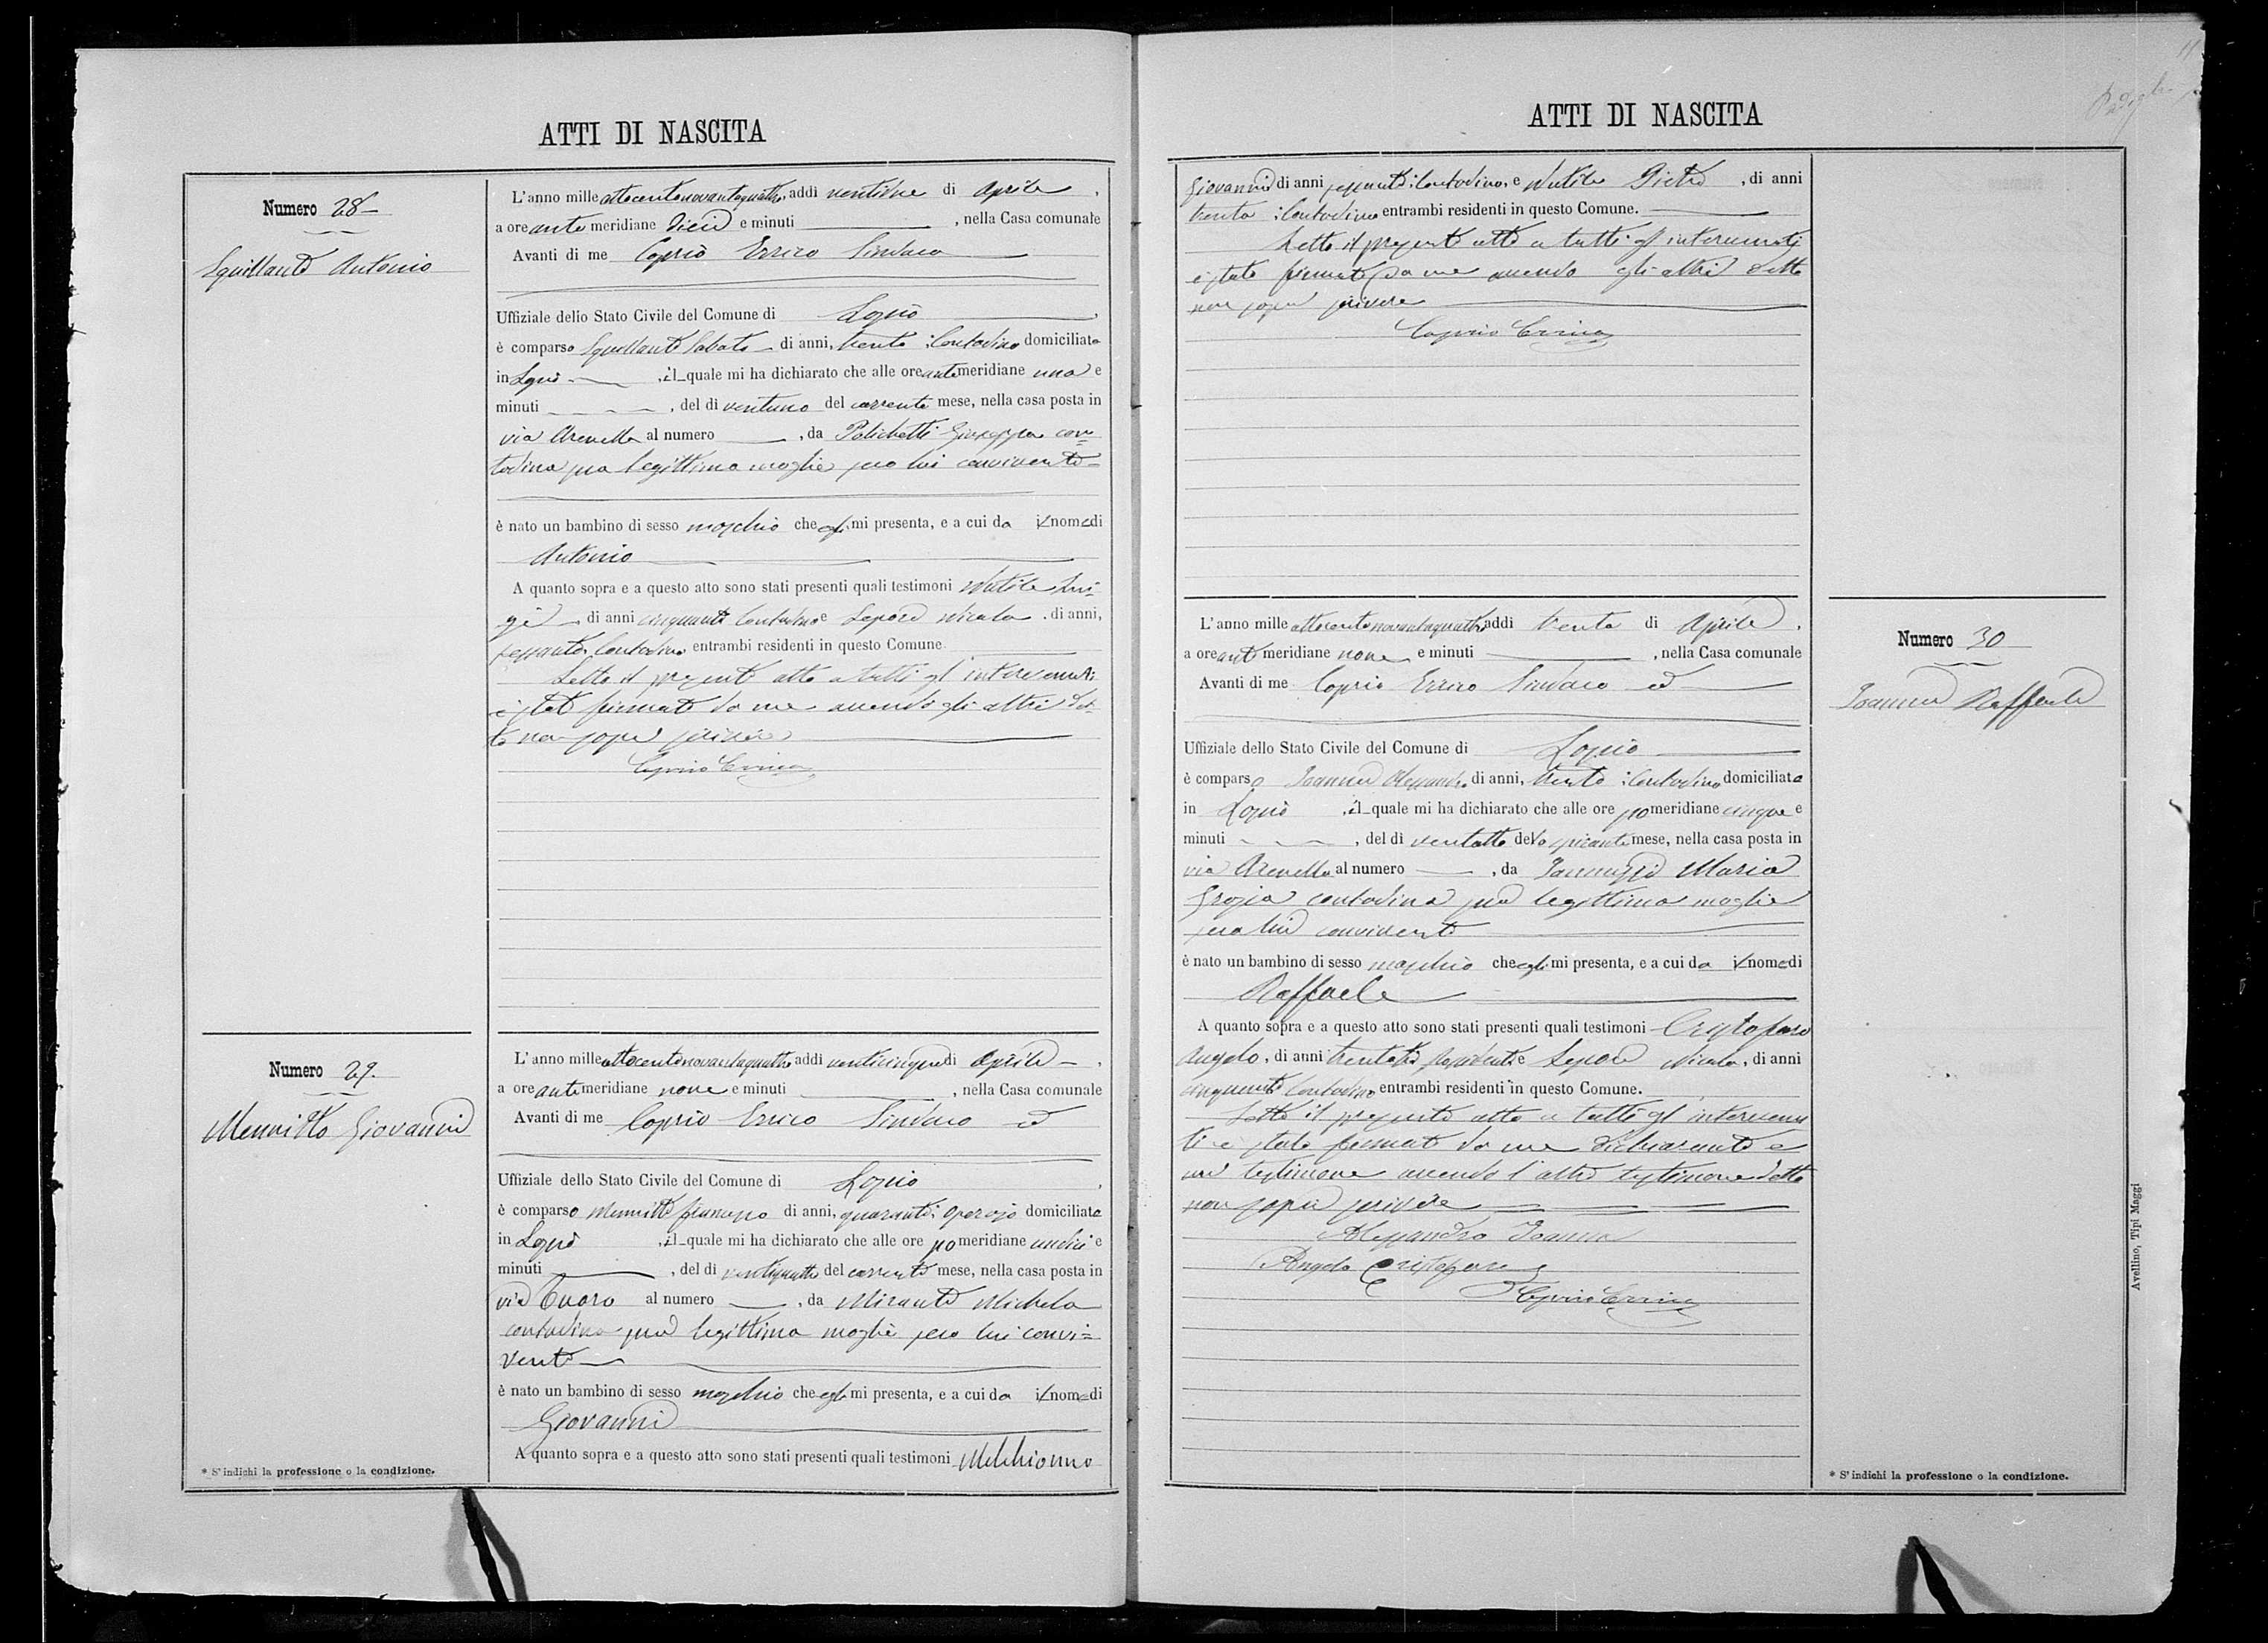 ATTI DI NASCITA
Numero 28
Squillante Antonio
L'anno mille ottocentonovantaquattro, addì ventidue di Aprile,
a ore ante meridiane dieci e minuti , nella Casa comunale
Avanti di me Caprio Errico Sindaco
Uffiziale dello Stato Civile del Comune di Lapio,
è comparso Squillante Sabato di anni, trenta Contadino domiciliato
in Lapio, il quale mi ha dichiarato che alle ore antemeridiane una e
minuti , del dì ventuno del corrente mese, nella casa posta in
via Arenella al numero , da Polichetti Giuseppa con=
tadina sua legittima moglie seco lui convivente
è nato un bambino di sesso maschio che egli mi presenta, e a cui da il nome di
Antonio
A quanto sopra e a questo atto sono stati presenti quali testimoni Nutile Lui-
gi di anni cinquanta Contadino e Lepore Nicola, di anni,
sessanta Contadino entrambi residenti in questo Comune.
Letto il presente atto a tutti gl'intervenuti
è stato firmato da me avendo gli altri det-
to non saper scrivere
Caprio Errico
Numero 29.
Mennitto Giovanni
L'anno mille ottocentonovantaquattro addì venticinque di Aprile,
a ore antemeridiane nove e minuti , nella Casa comunale
Avanti di me Caprio Errico Sindaco ed
Uffiziale dello Stato Civile del Comune di Lapio,
è comparso Mennitto di anni, quaranta: Operajo domiciliato
in Lapio, il quale mi ha dichiarato che alle ore pomeridiane undici e
minuti , del dì ventiquattro del corrente mese, nella casa posta in
via al numero , da Mirante Michela
contadina sua legittima moglie seco lui convi=
vente
è nato un bambino di sesso maschio che egli mi presenta, e a cui da il nome di
Giovanni
A quanto sopra e a questo atto sono stati presenti quali testimoni Melchionno
* S'indichi la professione o la condizione.
ATTI DI NASCITA
11
Giovanni di anni sessanta: Contadino, e Nutile Pietro, di anni
trenta: Contadino entrambi residenti in questo Comune.
Letto il presente atto a tutti gl'intervenuti
è stato firmato da me avendo gli altri detto
non saper scrivere
Caprio Errico
Numero 30
Ioanna Raffaele
L'anno mille ottocentonovantaquattro addì trenta di Aprile,
a ore ant meridiane nove e minuti , nella Casa comunale
Avanti di me Caprio Errico Sindaco ed
Uffiziale dello Stato Civile del Comune di Lapio
è comparso Ioanna Alessandro di anni, trenta: Contadino domiciliato
in Lapio, il quale mi ha dichiarato che alle ore pomeridiane cinque e
minuti , del dì ventotto dello spirante mese, nella casa posta in
via Arenella al numero , da Iannuzzi Maria
Grazia contadina sua legittima moglie
seco lui convivente
è nato un bambino di sesso maschio che egli mi presenta, e a cui da il nome di
Raffaele
A quanto sopra e a questo atto sono stati presenti quali testimoni Cristofaro
Angelo, di anni trentatre e Lepore Nicola, di anni
cinquanta Contadino entrambi residenti in questo Comune.
Letto il presente atto a tutti gl'intervenu
ti è stato firmato da me dichiarante e
un testimone avendo l'altro testimone detto
non saper scrivere
Alessandro Ioanna
Angelo Cristofaro
Caprio Errico
* S'indichi la professione o la condizione.
Avellino, Tipi Maggi